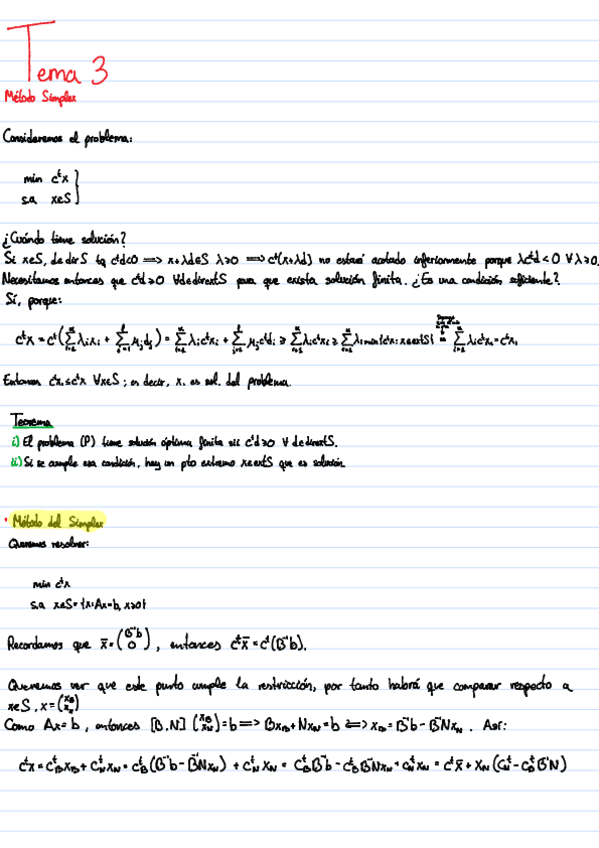 Tema 3
Método Simplex
Consideremos el problema:
min cᵗx
s.a x∈S }
¿Cuándo tiene solución?
Si x∈S, d∈dirS tq cᵗd<0 ⟹ x+λd∈S λ≥0 ⟹ cᵗ(x+λd) no estará acotado inferiormente porque λcᵗd<0 ∀λ≥0.
Necesitamos entonces que cᵗd≥0 ∀d∈dirextS para que exista solución finita. ¿Es una condición suficiente?
Sí, porque:
cᵗx = cᵗ(∑λᵢxᵢ + ∑μⱼdⱼ) = ∑λᵢcᵗxᵢ + ∑μⱼcᵗdⱼ ≥ ∑λᵢcᵗxᵢ ≥ ∑λᵢ min{cᵗx: x∈extS} = ∑λᵢcᵗxₛ = cᵗxₛ
Entonces cᵗxₛ≤cᵗx ∀x∈S; es decir, xₛ es sol. del problema.
Teorema
i) El problema (P) tiene solución óptima finita sii cᵗd≥0 ∀ d∈dirextS.
ii) Si se cumple esa condición, hay un pto extremo x∈extS que es solución.
• Método del Simplex
Queremos resolver:
min cᵗx
s.a x∈S={x:Ax=b, x≥0}
Recordamos que x̄=(B⁻¹b 0), entonces cᵗx̄ = cᵗ(B⁻¹b).
Queremos ver que este punto cumple la restricción, por tanto habrá que comparar respecto a
x∈S, x=(x_B x_N)
Como Ax=b, entonces [B,N] (x_B x_N)=b ⟹ Bx_B+Nx_N=b ⟺ x_B=B⁻¹b-B⁻¹Nx_N. Así:
cᵗx = cᵗ_B x_B + cᵗ_N x_N = cᵗ_B (B⁻¹b - B⁻¹Nx_N) + cᵗ_N x_N = cᵗ_B B⁻¹b - cᵗ_B B⁻¹Nx_N + cᵗ_N x_N = cᵗx̄ + x_N (cᵗ_N - cᵗ_B B⁻¹N)